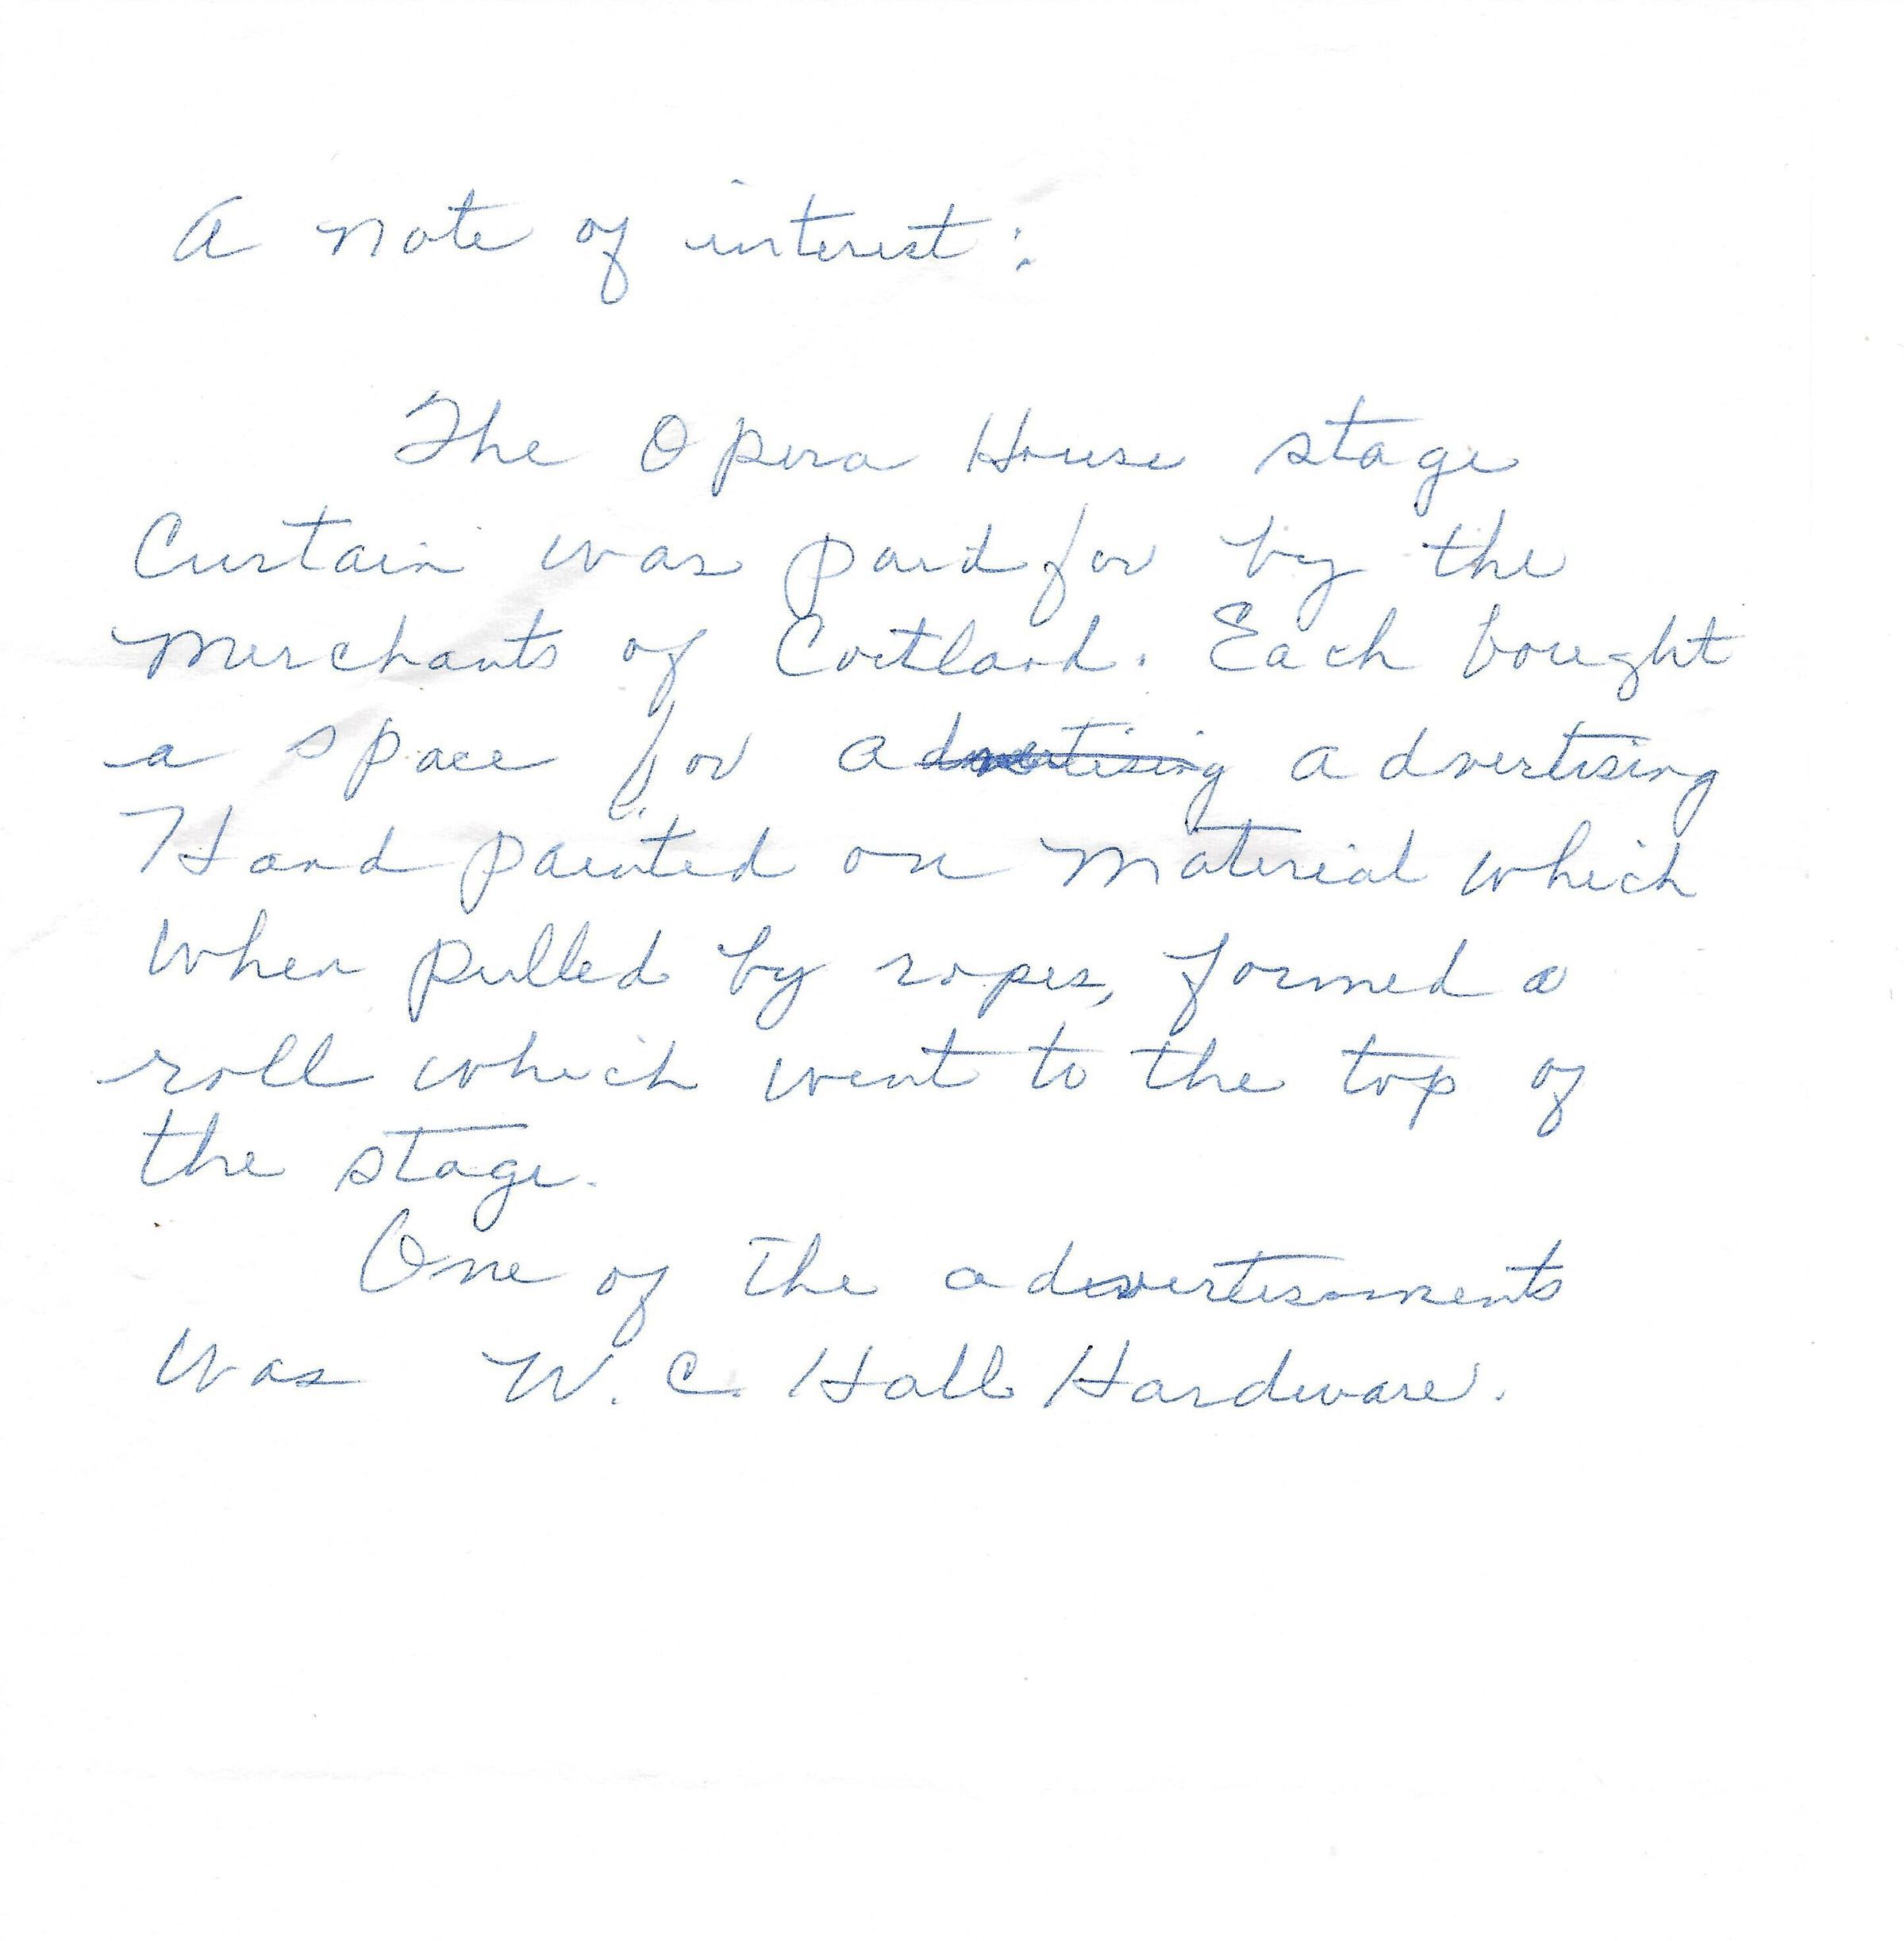 A note of interest:
The Opera House stage
Curtain was paid for by the
Merchants of Cortland. Each bought
a space for advertising advertising
Hand painted on Material which
when pulled by ropes, formed a
roll which went to the top of
the stage.
One of the advertisements
was W. C. Hall Hardware.